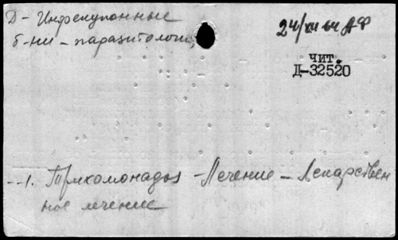 Д - Инфекционные
б-ни - паразитологи
чит.
Д-32520
1. Трихомонадоз - Лечение - Лекарствен
ное лечение